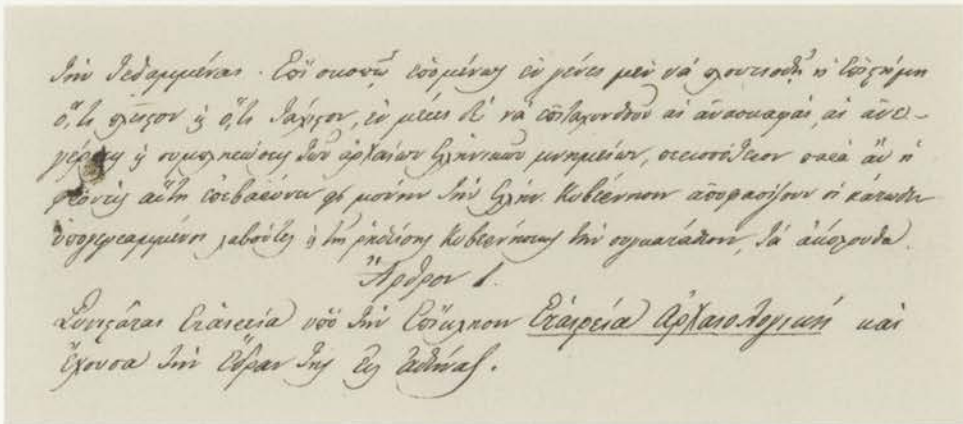 τὴν τεθαμμένας. Ἐπὶ σκοπῷ ἑπομένως ἐν γένει μὲν νὰ πλουτισθῇ ἡ Ἐπιστήμη
ὅ,τι πλεῖστον ἢ ὅ,τι τάχιστον, ἐν μέρει δὲ νὰ ἐπιταχυνθοῦν αἱ ἀνασκαφαί, αἱ ἀνε-
γέρσεις ἢ συμπληρώσεις τῶν ἀρχαίων Ἑλληνικῶν μνημείων, περισσότερον παρὰ ἂν ἡ
φροντὶς αὕτη ἐπεβαρύνει μόνην τὴν Ἑλλην. Κυβέρνησιν ἀποφασίζουν οἱ κάτωθεν
ὑπογεγραμμένοι λαβόντες τῆς Κυβερνήσεως τὴν συγκατάθεσιν, τὰ ἀκόλουθα.
Ἄρθρον 1.
Συνιστᾶται Ἑταιρεία ὑπὸ τὴν Ἐπίκλησιν Ἑταιρεία Ἀρχαιολογικὴ καὶ
ἔχουσα τὴν Ἕδραν της εἰς Ἀθήνας.